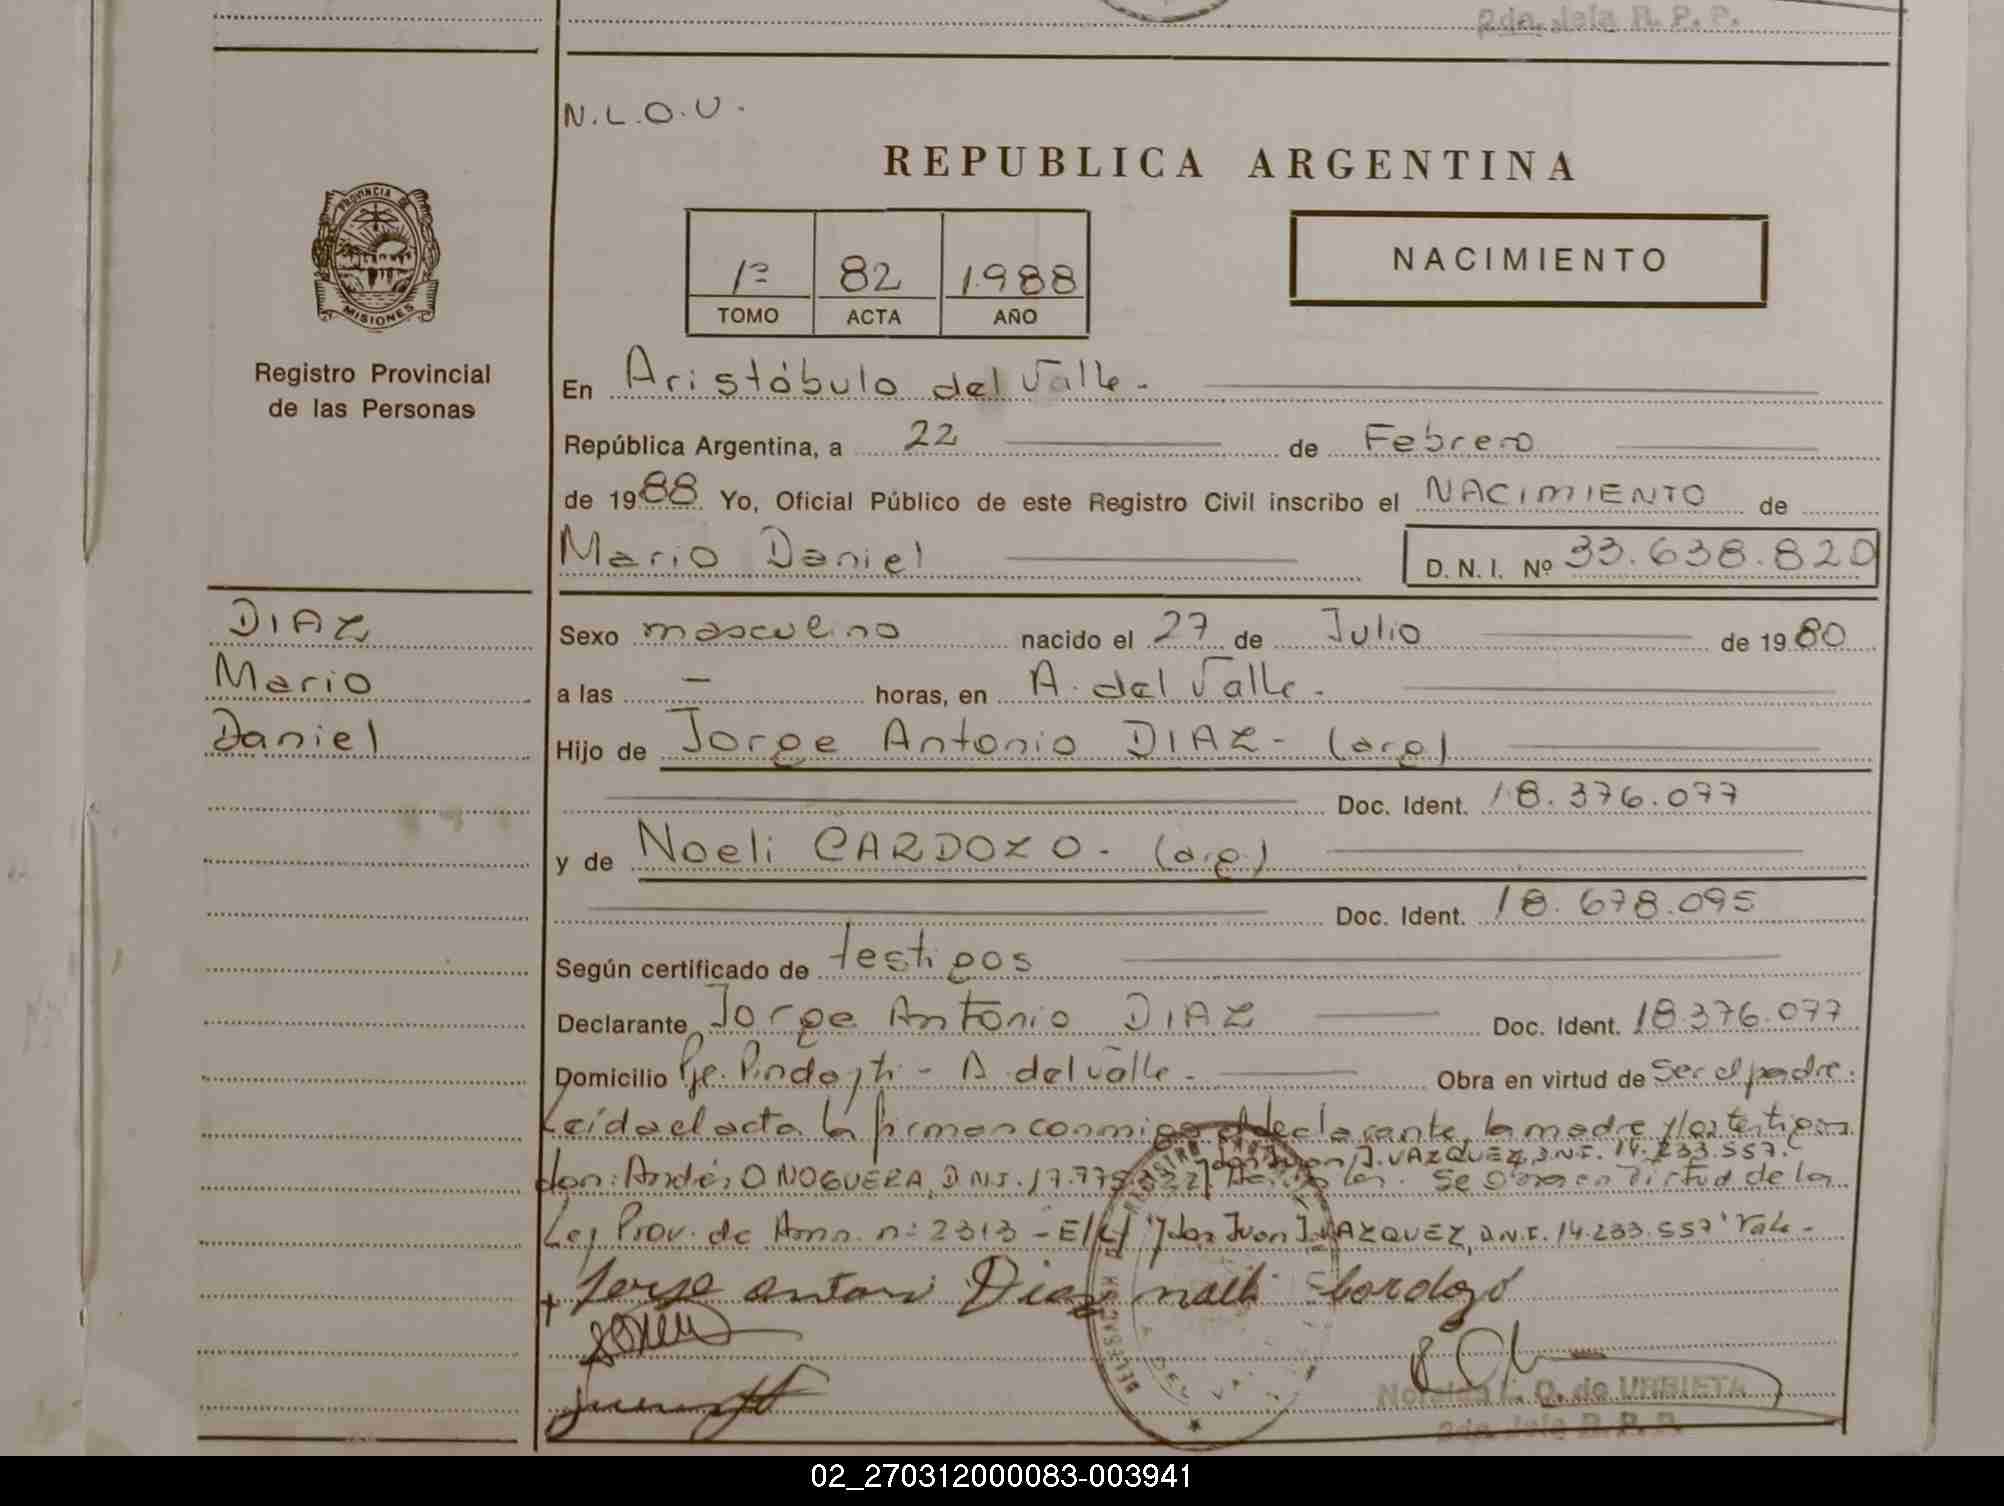 2da. Jefa R. P. P.
N.L.O.U.
REPUBLICA ARGENTINA
PROVINCIA DE
MISIONES
NACIMIENTO
1º 82 1.988
TOMO ACTA AÑO
Registro Provincial
de las Personas
En Aristóbulo del Valle.
República Argentina, a 22 de Febrero
de 1988 Yo, Oficial Público de este Registro Civil inscribo el NACIMIENTO de
Mario Daniel D. N. I. Nº 33.638.820
DIAZ
Mario
Daniel
Sexo masculino nacido el 27 de Julio de 1980
a las – horas, en A. del Valle.
Hijo de Jorge Antonio DIAZ- (arg)
Doc. Ident. 18.376.077
y de Noeli CARDOZO. (arg)
Doc. Ident. 18.678.095
Según certificado de testigos
Declarante Jorge Antonio DIAZ Doc. Ident. 18.376.077
Domicilio Pje. Pindayti - A. del Valle. Obra en virtud de ser el padre.
Leída el acta la firman conmigo el declarante, la madre y los testigos
y don Juan J. VAZQUEZ, D.N.I. 14.233.557.
don: Andrés O NOGUERA, D.N.I. 17.775. Se obra en virtud de la
Ley Prov. de Amn. nº 2313 - E/L "y don Juan J. VAZQUEZ, D.N.I. 14.233.557" Vale-
+ Jorge antoni Diaz noeli cardozo
Noraida L. O. de URRIETA
2da. Jefa R. P. P.
02_270312000083-003941